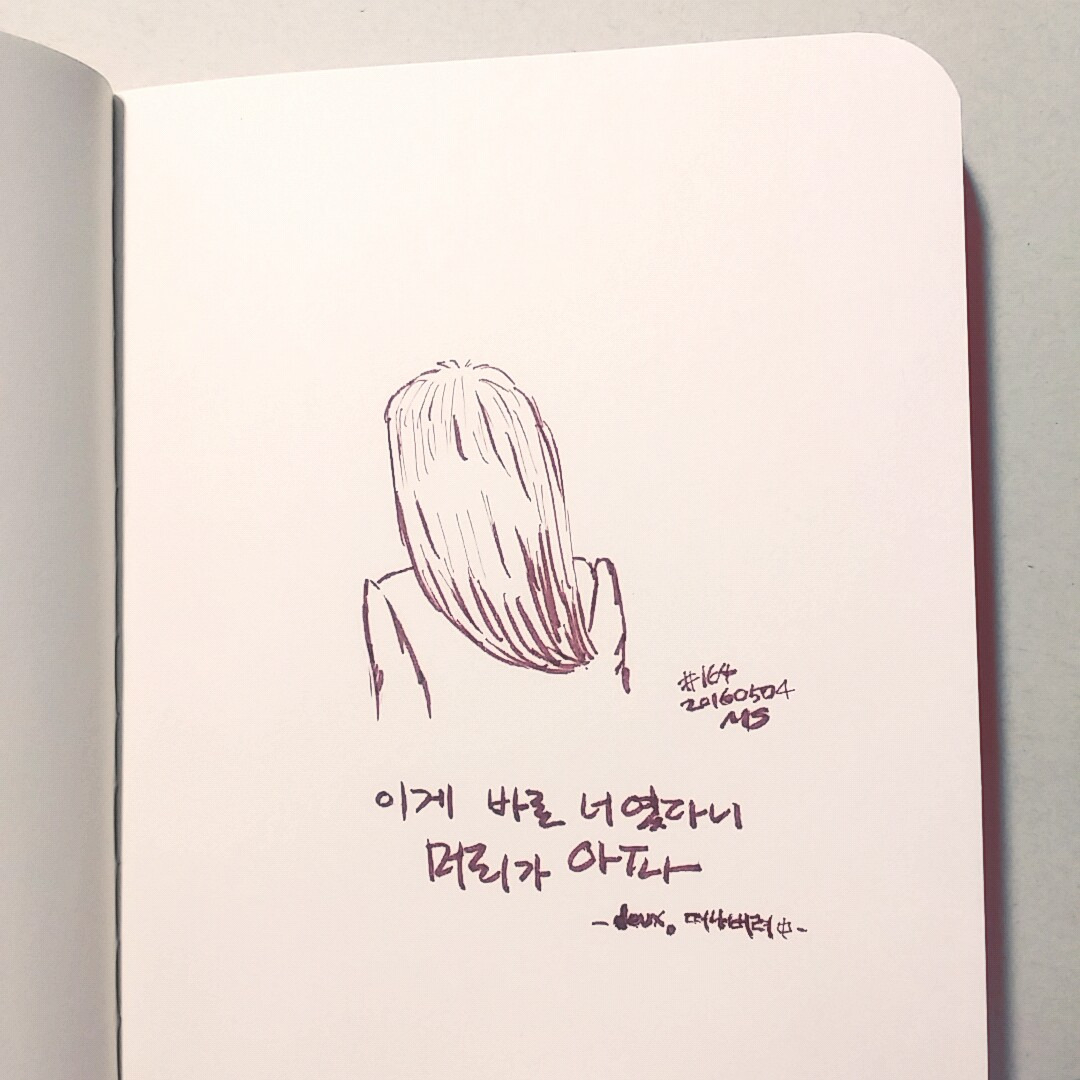 #164
20160504
MS
이게 바로 너였다니
머리가 아파
- deux. 떠나버려 中 -